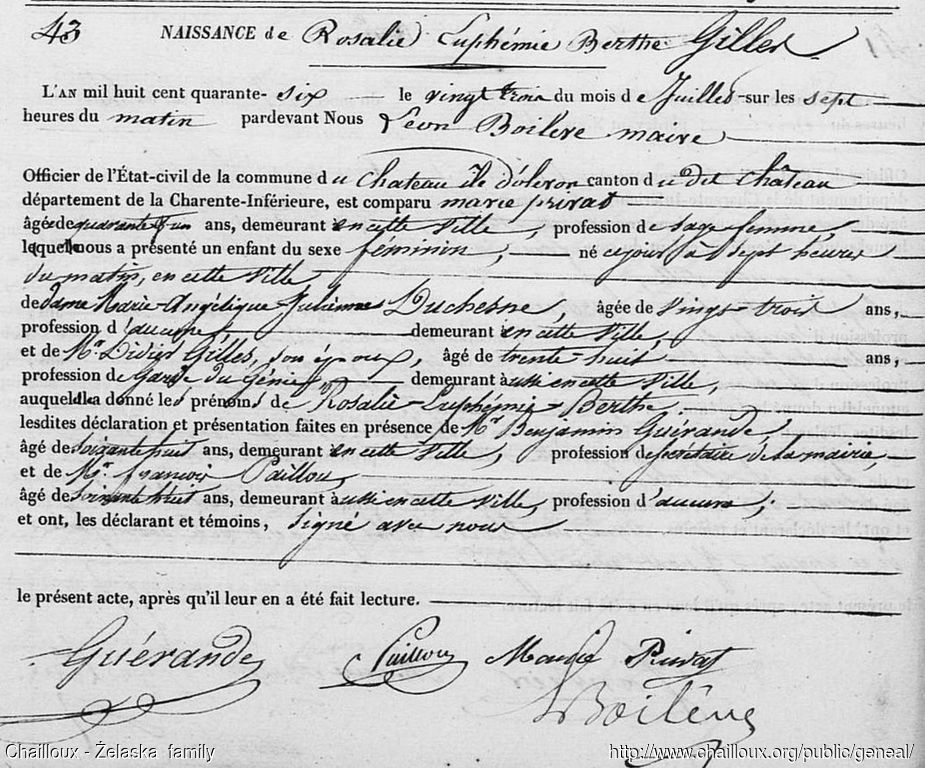 43 NAISSANCE de Rosalie Euphémie Berthe Gilles
L'AN mil huit cent quarante-six le vingt trois du mois de Juillet sur les sept
heures du matin pardevant Nous Léon Boilève maire
Officier de l'État-civil de la commune du Chateau île d'oleron canton du dit Château
département de la Charente-Inférieure, est comparu marie privat
âgée de quarante un ans, demeurant en cette ville, profession de sage femme,
laquelle nous a présenté un enfant du sexe féminin, né ce jour à sept heures
du matin, en cette ville,
de Dame Marie-Angélique-Julienne Duchesne, âgée de vingt-trois ans,
profession d'aucune, demeurant en cette ville,
et de Mr. Didier Gilles, son époux, âgé de trente-huit ans,
profession de Garde du Génie, demeurant aussi en cette ville,
auquel elle a donné les prénoms de Rosalie-Euphémie-Berthe.
lesdites déclaration et présentation faites en présence de Mr. Benjamin Guérande,
âgé de soixante huit ans, demeurant en cette ville, profession de secrétaire de la mairie,
et de Mr. françois Paillou,
âgé de soixante huit ans, demeurant à aussi en cette ville, profession d'aucune;
et ont, les déclarant et témoins, signé avec nous
le présent acte, après qu'il leur en a été fait lecture.
Guérande Paillou Marie Privat
Boilève
Chailloux - Żelaska family http://www.chailloux.org/public/geneal/